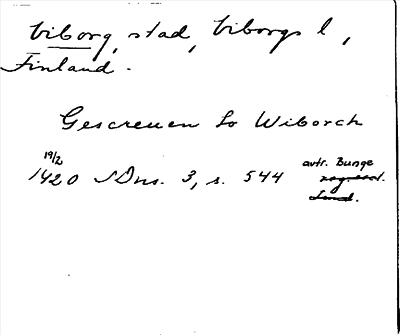 Viborg, stad, Viborgs l,
Finland.
Gescreuen to Wiborch
19/2
1420 SDns. 3, s. 544 avtr. Bunge